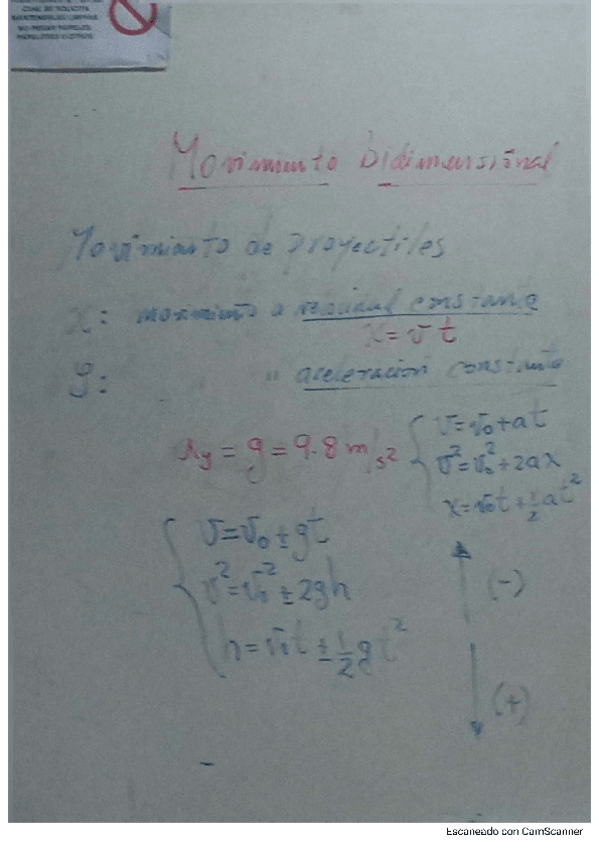 MANTENERLAS LIMPIAS
NO PEGAR PAPELES
Movimiento Bidimensional
Movimiento de proyectiles
X: movimiento a velocidad constante
X = v t
y: " aceleración constante
ay = g = 9.8 m/s²
v = v₀ + at
v² = v₀² + 2ax
x = v₀t + ½at²
v = v₀ ± gt
v² = v₀² ± 2gh
h = v₀t ± ½gt²
(-)
(+)
Escaneado con CamScanner